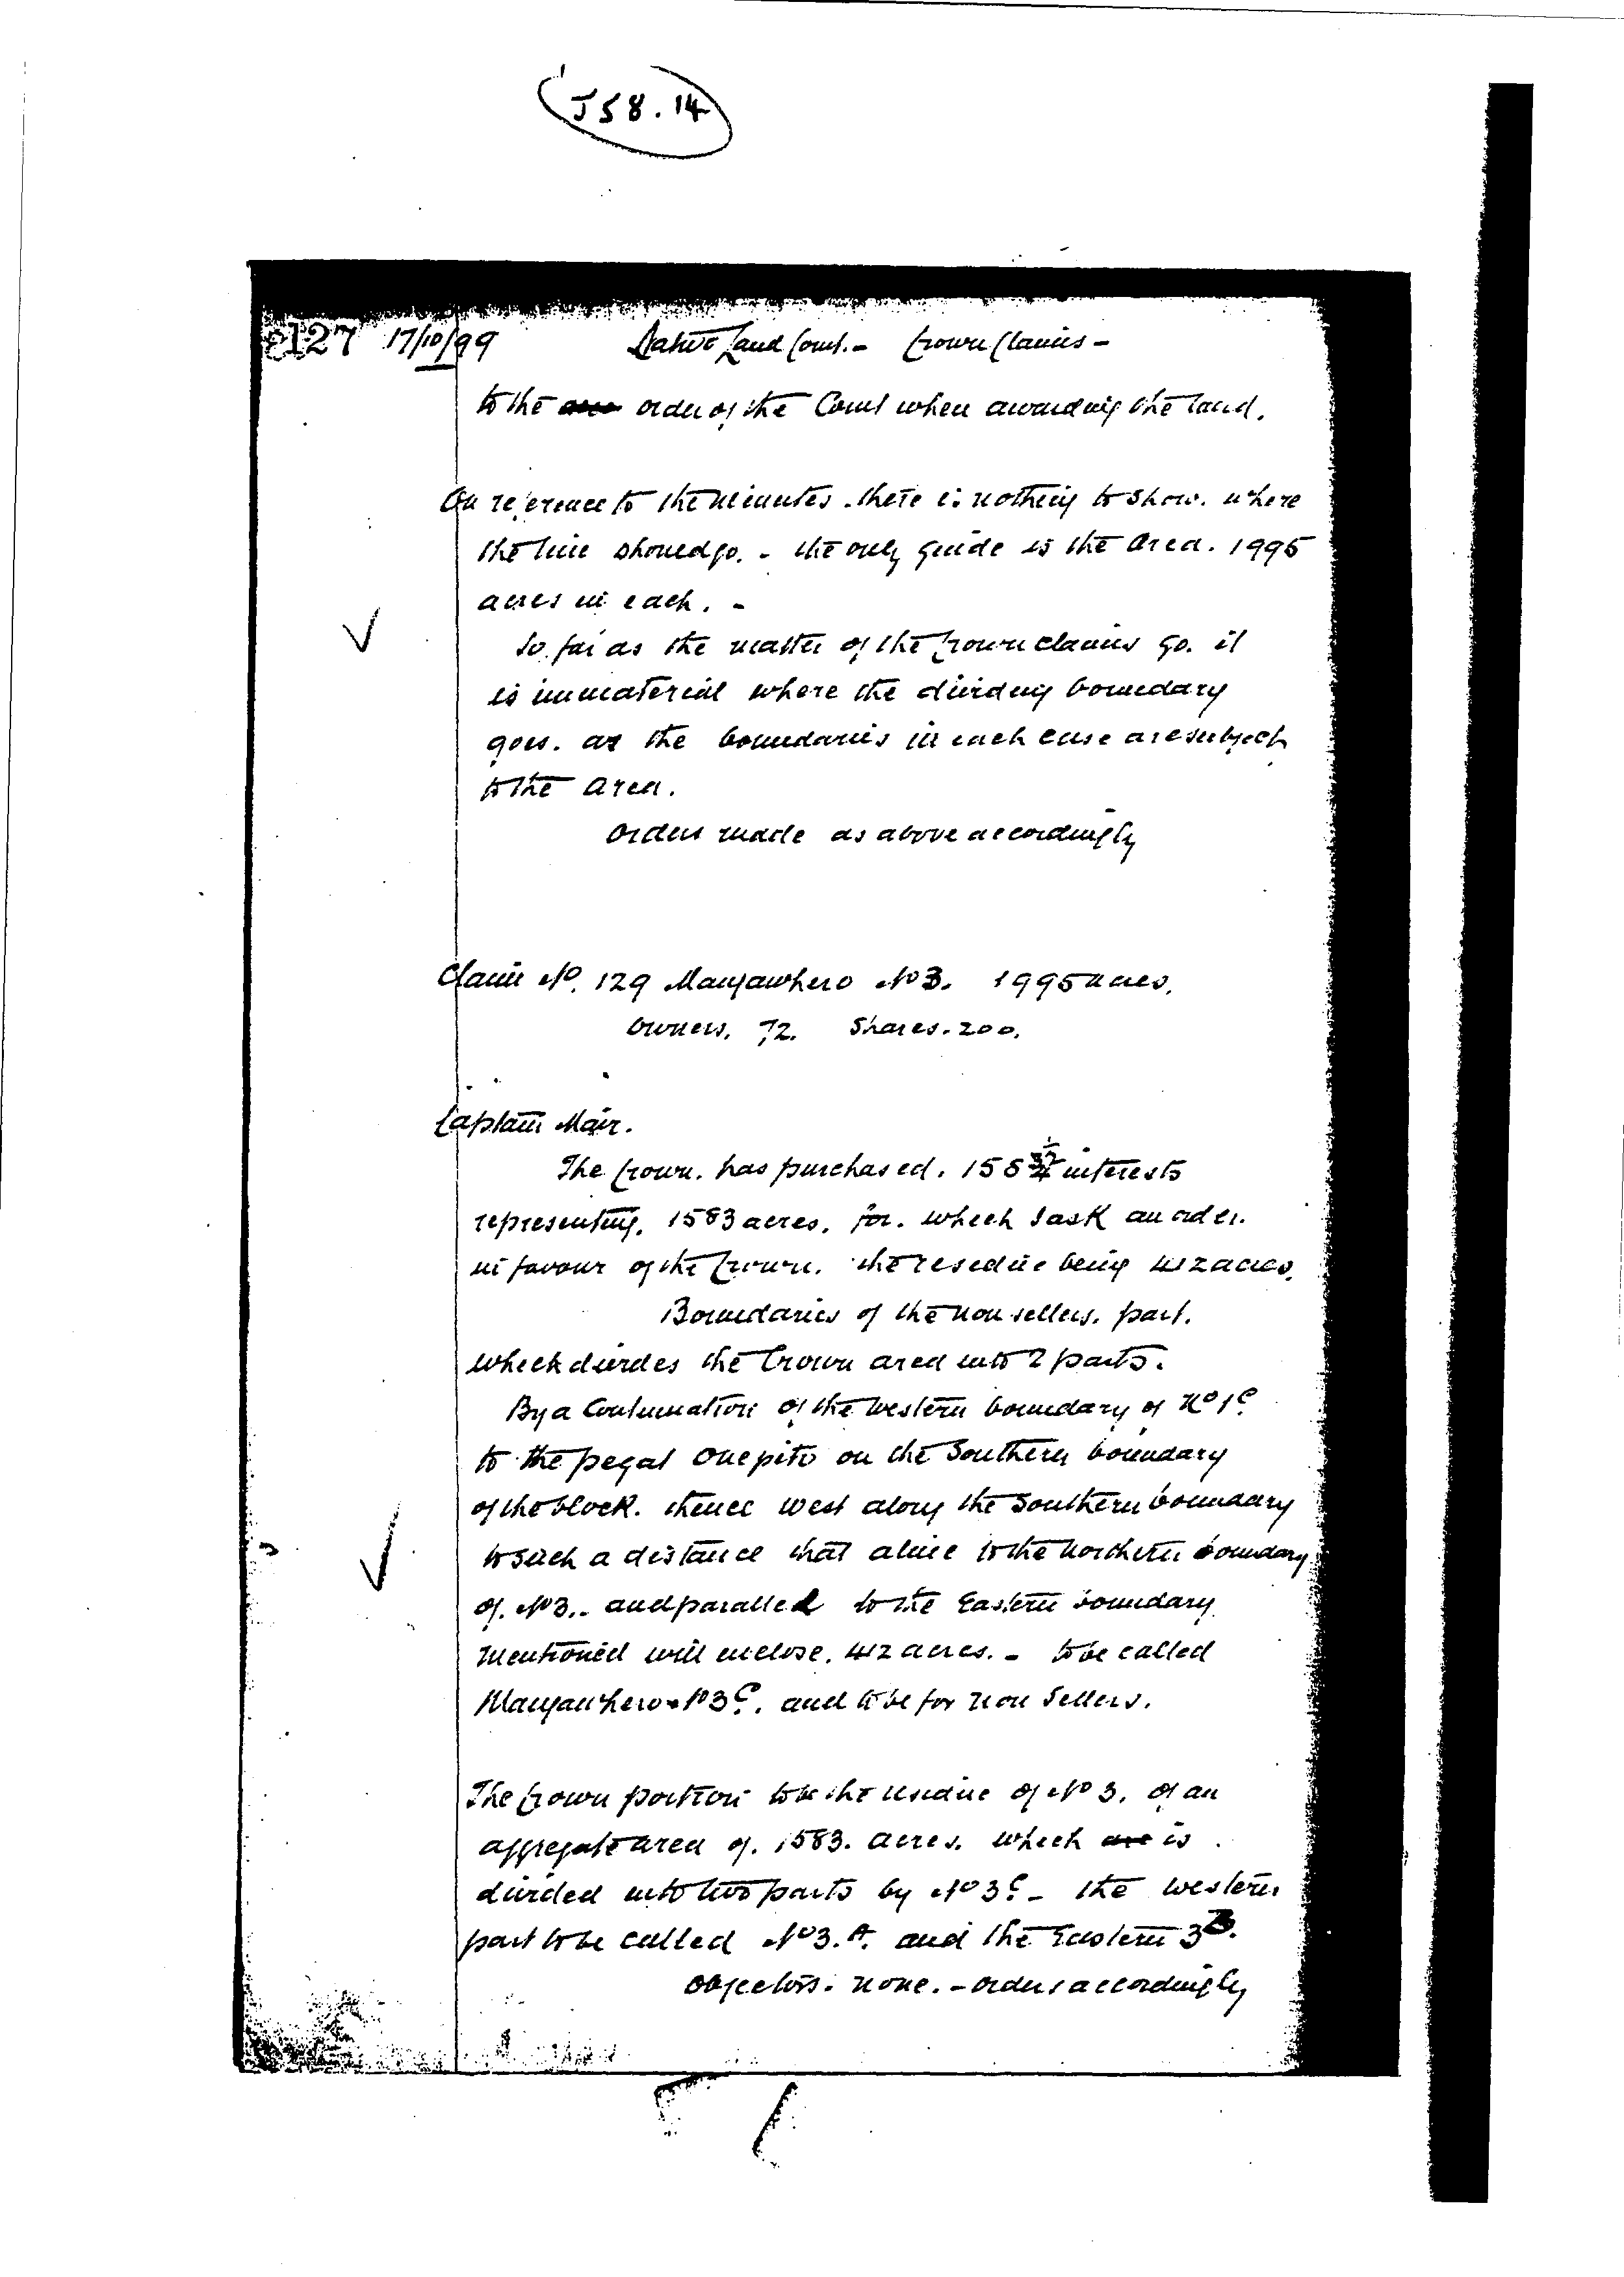 J58.14
127 17/10/99 Native Land Court. - Crown Claims -
to the order of the Court when awarding the land.
On reference to the minutes. there is nothing to show. where
the line should go. - the only guide is the area. 1995
acres in each. -
So far as the matter of the Crown claims go. it
is immaterial where the dividing boundary
goes. as the boundaries in each case are subject
to the area.
Orders made as above accordingly
Claim No. 129 Mangawhero No 3. 1995 acres.
Owners. 72. Shares. 200.
Captain Mair.
The Crown. has purchased. 158 interests
representing. 1583 acres. for. which I ask an order.
in favour of the Crown. the residue being 412 acres.
Boundaries of the non sellers. part.
which divides the Crown area into 2 parts.
By a Continuation of the Western boundary of No 1C
to the pegat Onepito on the Southern boundary
of the block. thence west along the Southern boundary
to such a distance that a line to the Northern boundary
of. No 3.. and parallel to the Eastern boundary
mentioned will enclose. 412 acres. - to be called
Mangawhero No 3C. and to be for non Sellers.
The Crown portion to be the residue of No 3. of an
aggregate area of. 1583. acres. which are is
divided into two parts by No 3C - the western
part to be called No 3.A. and the Eastern 3B.
Objectors. none. - orders accordingly